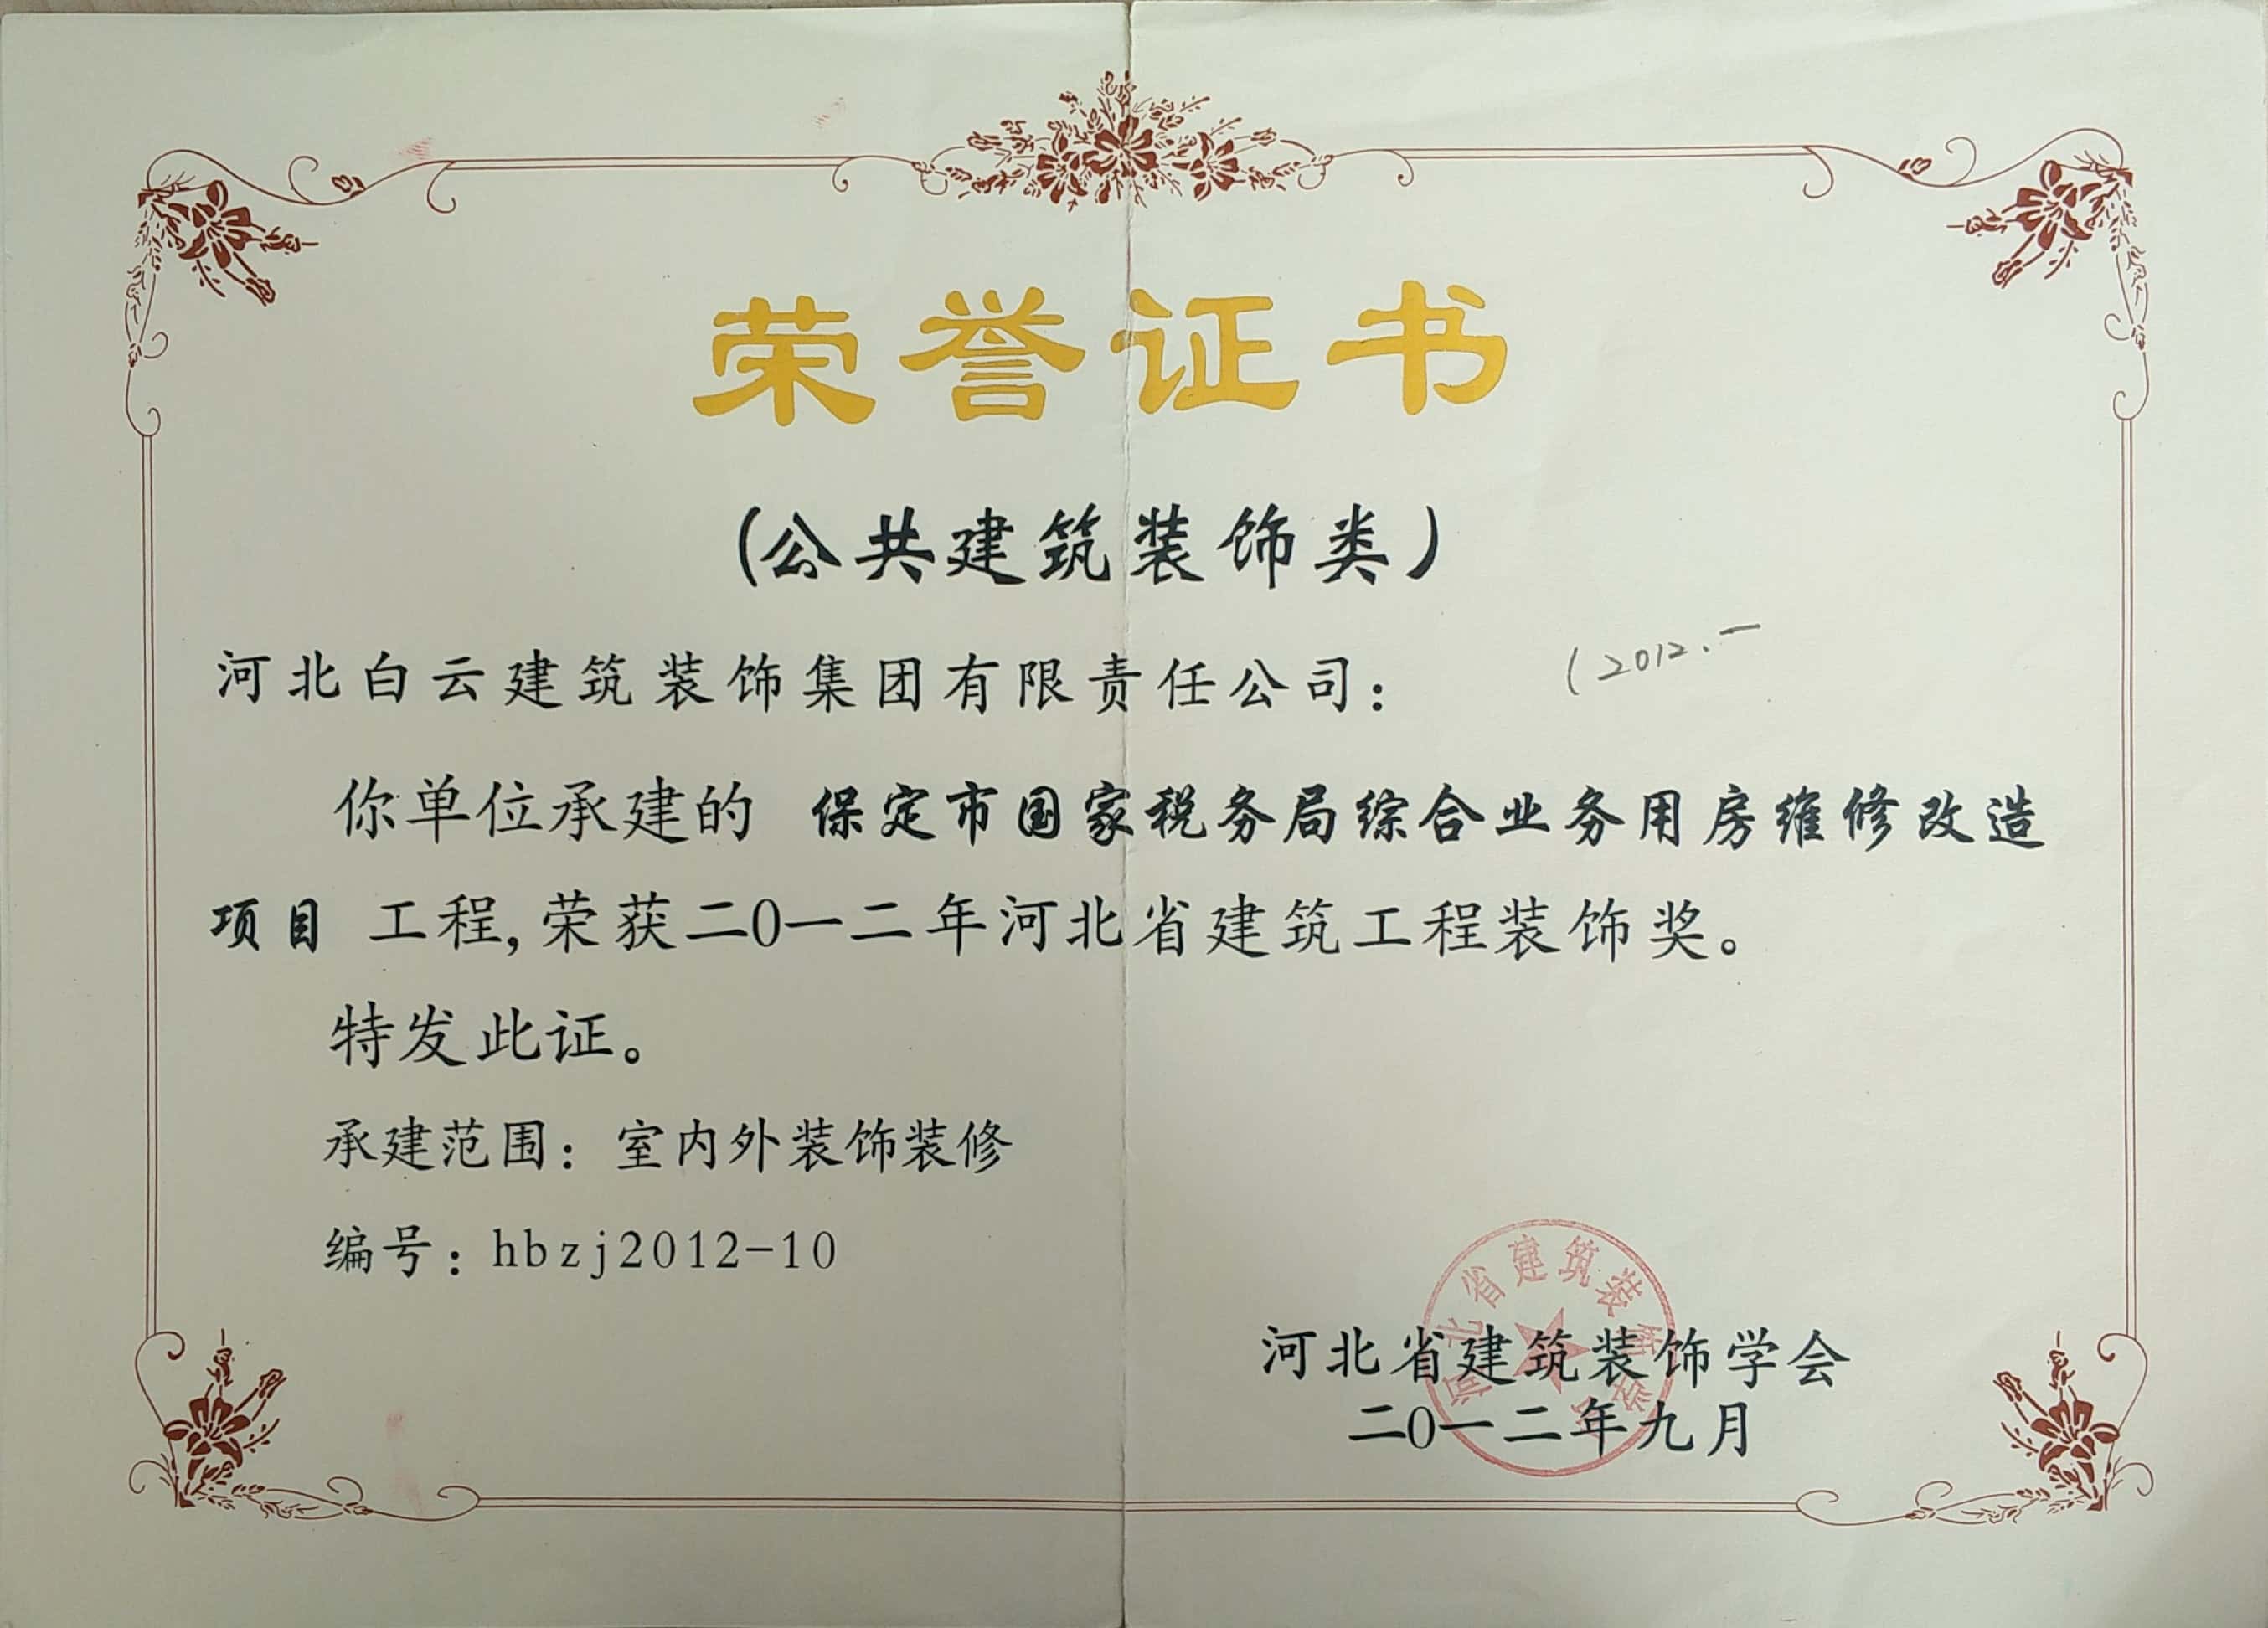 荣誉证书
(公共建筑装饰类)
河北白云建筑装饰集团有限责任公司:
(2012.一
你单位承建的 保定市国家税务局综合业务用房维修改造
项目 工程,荣获二0一二年河北省建筑工程装饰奖。
特发此证。
承建范围: 室内外装饰装修
编号: hbzj2012-10
河北省建筑装饰学会
二0一二年九月
河北省建筑装饰学会